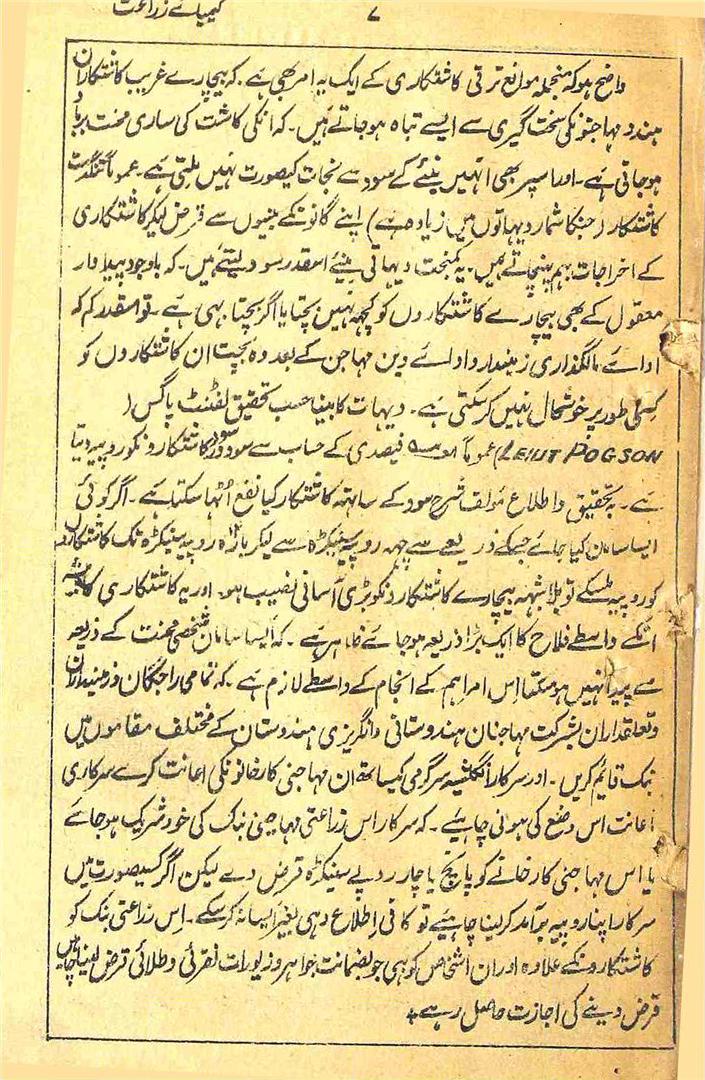 کیمیائے زراعت
۷
واضح ہو کہ منجملہ موانع ترقی کاشتکاری کے ایک یہ امر بھی ہے۔ کہ بیچارے غریب کاشتکاران
ہندو مہاجنونکی سخت گیری سے ایسے تباہ ہو جاتے ہیں۔ کہ انکی کاشت کی ساری محنت برباد
ہو جاتی ہے۔ اور اسپر بھی انہیں بنیئے کے سود سے نجات کیصورت نہیں ملتی ہے۔ عموماً تنگدست
کاشتکار (جنکا شمار دیہاتوں میں زیادہ ہے) اپنے گانونکے بنیوں سے قرض لیکر کاشتکاری
کے اخراجات بہم پہنچاتے ہیں۔ یہ کمبخت دیہاتی بنیئے اسقدر سود لیتے ہیں۔ کہ باوجود پیداوار
معقول کے بھی بیچارے کاشتکاروں کو کچھ نہیں بچتا یا اگر بچتا بہی ہے۔ تو اسقدر کم کہ
ادائے مالگذاری زمیندار و ادائے دین مہاجن کے بعد وہ بچت ان کاشتکاروں کو
کسی طور پر خوشحال نہیں کرسکتی ہے۔ دیہات کا بنیا حسب تحقیق لفٹنٹ پاگسن (
LEIUT POGSON) عموماً فیصدی کے حساب سے سود در سود کاشتکارونکو روپیہ دیتا
ہے۔ بہ تحقیق و اطلاع مولف شرح سود کے ساتھ کاشتکار کیا نفع اٹھا سکتا ہے۔ اگر کوئی
ایسا سامان کیا جائے جسکے ذریعے سے چھہ روپیہ سیکڑہ سے لیکر بارہ روپیہ سیکڑہ تک کاشتکاروں
کو روپیہ ملسکے تو بلا شبہہ بیچارے کاشتکارونکو بڑی آسانی نصیب ہو۔ اور یہ کاشتکاری کا پیشہ
انکے واسطے فلاح کا ایک بڑا ذریعہ ہو جائے ظاہر ہے۔ کہ ایسا سامان شخصی محنت کے ذریعہ
سے پیدا نہیں ہو سکتا اِس امر اہم کے انجام کے واسطے لازم ہے۔ کہ تمامی راجگان و زمینداران
و تعلقداران بشرکت مہاجنان ہندوستانی و انگریزی ہندوستان کے مختلف مقاموں میں
بنک قایم کریں۔ اور سرکار انگلشیہ سرگرمی کیساتھ ان مہاجنی کارخانونکی اعانت کرے سرکاری
اعانت اس وضع کی ہونی چاہیئے۔ کہ سرکار اس زراعتی مہاجنی بنک کی خود شریک ہو جاے
یا اس مہاجنی کارخانے کو پانچ یا چار روپے سیکڑہ قرض دے لیکن اگر کسیصورت میں
سرکار اپنا روپیہ برآمد کر لینا چاہیے تو کافی اِطلاع دہی بغیر ایسا نہ کرسکے۔ اِس زراعتی بنک کو
کاشتکارونکے علاوہ اور ان اشخاص کو بہی جو بضمانت جواہر و زیورات نقرئی و طلائی قرض لینا چاہیں
قرض دینے کی اجازت حاصل رہے